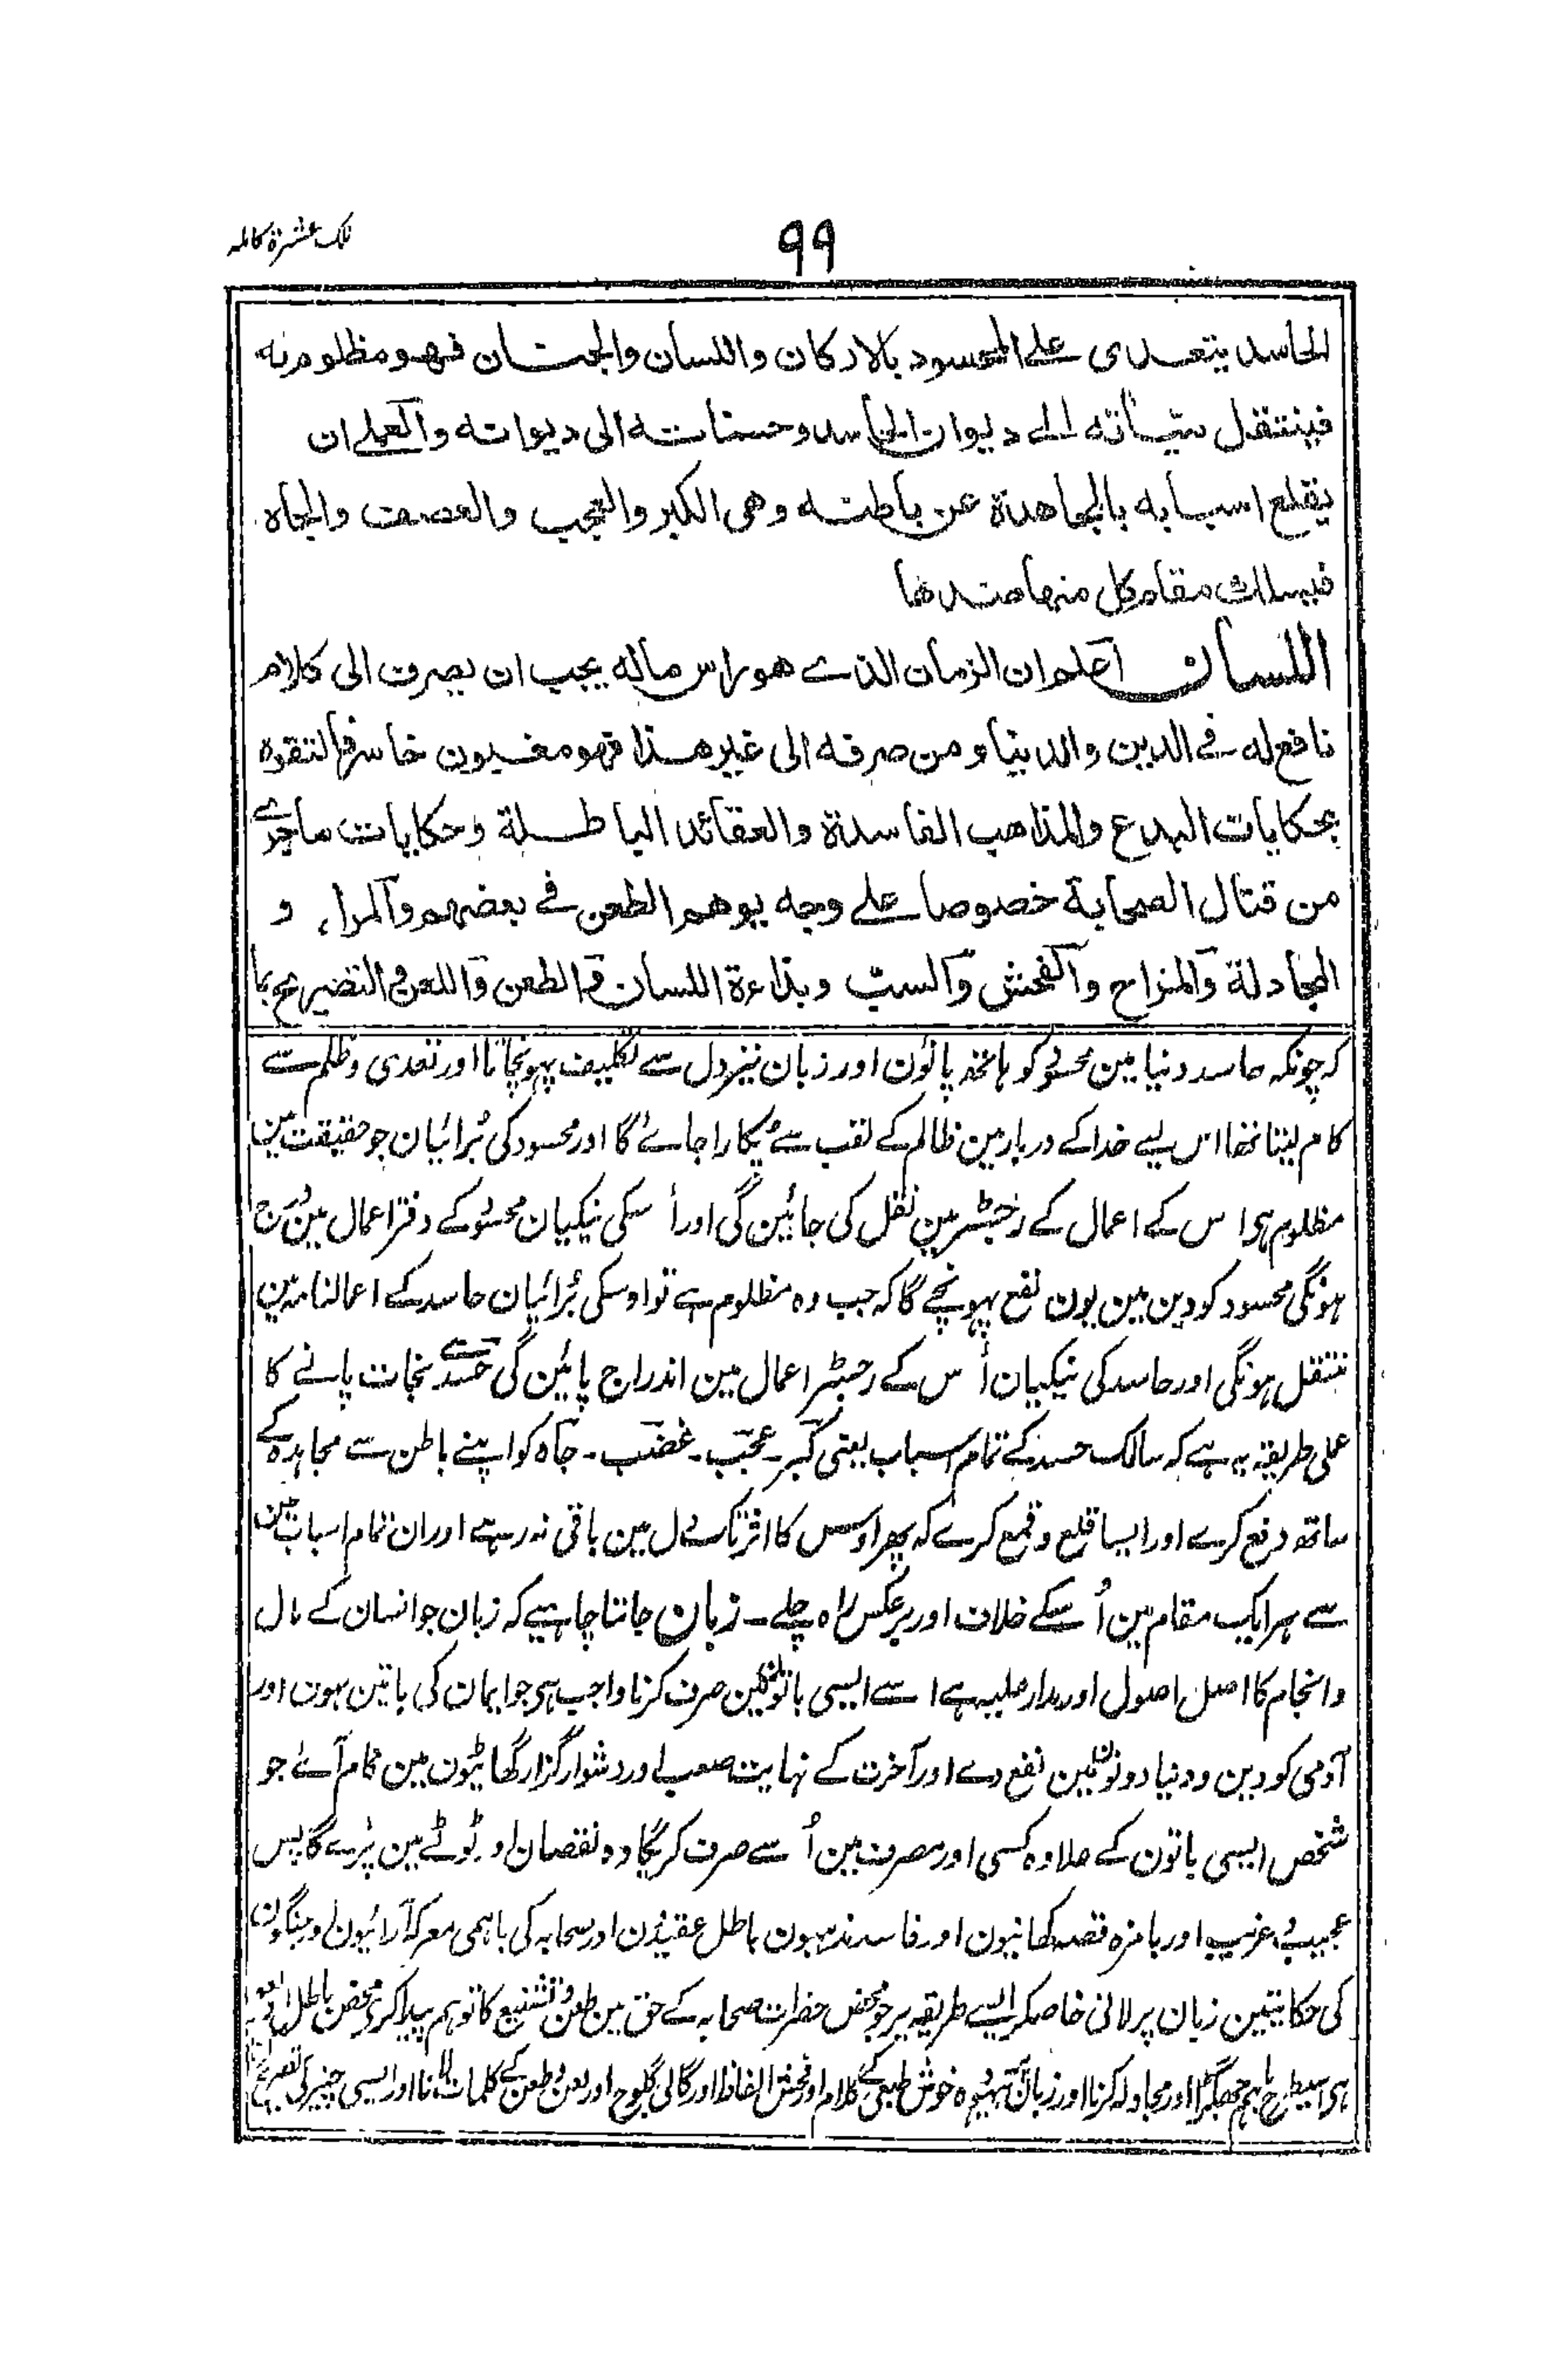 تلک عشرة کامله
۹۹
الحاسد يتعدى على المحسود بالاركان واللسان والجنان فهو مظلوم منه
فينتقل سيّأته الى ديوان الحاسد وحسناته الى ديوانه والعملى ان
يقلع اسبابه بالمجاهدة عن باطنه وهى الكبر والعجب والغضب والجاه
فيسلك مقام كل منها ضدها
اللسان اعلم ان الزمان الذے هو راس ماله يجب ان يصرف الى كلام
نافع له فے الدين والدنيا ومن صرفه الى غير هذا فهو مغبون خاسر فالتفوه
بحكايات البدع والمذاهب الفاسدة والعقائد الباطلة وحكايات ما جرے
من قتال الصحابة خصوصا على وجه يوهم الطعن فے بعضهم والمراء و
المجادلة والمزاح والفحش والسبّ وبذاءة اللسان والطعن واللعن والتصريح بما
کہ چونکہ حاسد دنیا مین محسود کو ہاتھ پانوُن اور زبان نیز دل سے تکلیف پہونچاتا اور تعدی و ظلم سے
کام لیتا تھا اس لیے خدا کے دربار مین ظالم کے لقب سے پُکارا جاےٗ گا اور محسود کی بُرائیان جو حقیقت مین
مظلوم ہی اس کے اعمال کے رجسٹر مین نقل کی جائین گی اور اُسکی نیکیان محسود کے دفتر اعمال مین درج
ہونگی محسود کو دین مین یون نفع پہونچے گا کہ جب وہ مظلوم ہے تو اوسکی بُرائیان حاسد کے اعمالنامہ مین
منتقل ہونگی اور حاسد کی نیکیان اُس کے رجسٹر اعمال مین اندراج پائین گی حسد سے نجات پانے کا
عملی طریقہ یہ ہے کہ سالک حسد کے تمام اسباب یعنی کبر۔ عجب۔ غضب۔ جاہ کو اپنے باطن سے مجاہدہ کے
ساتھ دفع کرے اور ایسا قلع و قمع کرے کہ پھر اوس کا اثر تک دل مین باقی نہ رہے اور ان تمام اسباب مین
سے ہر ایک مقام مین اُسکے خلاف اور برعکس راہ چلے۔ زبان جاننا چاہیے کہ زبان جو انسان کے مال
و انجام کا اصل اصول اور مدار علیہ ہے اسے ایسی باتون مین صرف کرنا واجب ہی جو ایمان کی باتین ہون اور
آدمی کو دین و دنیا دونون مین نفع دے اور آخرت کے نہایت صعب اور دشوار گزار گھاٹیون مین کام آےٗ جو
شخص ایسی باتون کے علاوہ کسی اور مصرف مین اُسے صرف کریگا وہ نقصان اور ٹوٹے مین پڑے گا پس
عجیب و غریب اور بامزہ قصہ کہانیون اور فاسد مذہبون باطل عقیدون اور صحابہ کی باہمی معرکہ آرائیون اور جنگون
کی حکایتین زبان پر لانی خاصکر ایسے طریقہ پر جو بعض حضرات صحابہ کے حق مین طعن و تشنیع کا توہم پیدا کرے محض باطل اور لغو
ہی اسیطرح باہم جھگڑا اور مجادلہ کرنا اور زبان پر بیہودہ خوش طبعی کے کلام اور فحش الفاظ اور گالی گلوج اور لعن و طعن کے کلمات لانا اور ایسی چیز کی تصریح